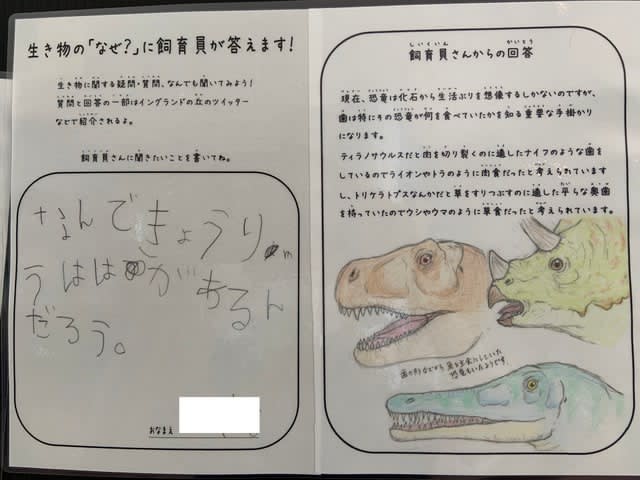 生き物の「なぜ?」に飼育員が答えます!
生き物に関する疑問・質問、なんでも聞いてみよう!
質問と回答の一部はイングランドの丘のツイッター
などで紹介されるよ。
飼育員さんに聞きたいことを書いてね。
なんできょうり
うははがあるん
だろう。
おなまえ
飼育員さんからの回答
現在、恐竜は化石から生活ぶりを想像するしかないのですが、
歯は特にその恐竜が何を食べていたかを知る重要な手掛かり
になります。
ティラノサウルスだと肉を切り裂くのに適したナイフのような歯を
しているのでライオンやトラのように肉食だったと考えられています
し、トリケラトプスなんかだと草をすりつぶすのに適した平らな奥歯
を持っていたのでウシやウマのように草食だったと考えられています。
歯の形などから魚を主食にしていた
恐竜もいたようです。